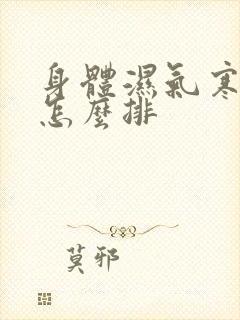 身體濕氣寒
怎麼排
莫邪